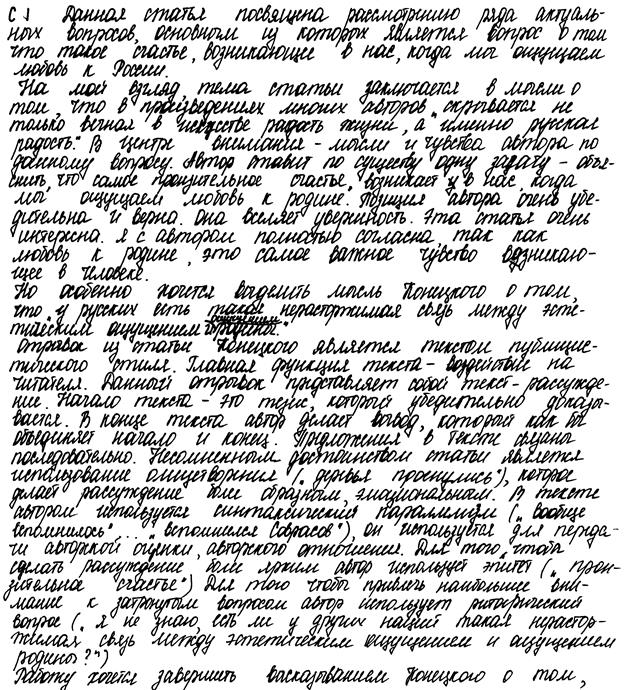 С1 Данная статья посвящена рассмотрению ряда актуаль-
ных вопросов, основным из которых является вопрос о том
что такое счастье, возникающее в нас, когда мы ощущаем
любовь к России.
На мой взгляд, тема статьи заключается в мысли о
том, что в произведениях многих авторов „скрывается не
только вечная в искусстве радость жизни, а именно русская
радость." В центре внимания - мысли и чувства автора по
данному вопросу. Автор ставит по существу одну задачу - объя-
снить, что самое пронзительное счастье „возникает и в нас, когда
мы ощущаем любовь к родине. Позиция автора очень убе-
дительна и верна. Она вселяет уверенность. Эта статья очень
интересна. Я с автором полностью согласна так как
любовь к родине, это самое важное чувство возникаю-
щее в человеке.
Но особенно хочется выделить мысль Конецкого о том,
что у русских есть такая нерасторжимая связь между эсте-
тическим ощущением родины."
Отрывок из статьи Конецкого является текстом публицис-
тического стиля. Главная функция текста - воздействие на
читателя. Данный отрывок представляет собой текст-рассужде-
ние. Начало текста - это тезис, который убедительно доказы-
вается. В конце текста автор делает вывод, который как бы
объединяет начало и конец. Предложения в тексте связаны
последовательно. Несомненным достоинством статьи является
использование олицетворения („деревья проснулись"), которое
делает рассуждение боле образным, эмациональным. В тексте
автором используется синтаксический параллелизм („Вообще
вспомнилось"... „вспомнился Саврасов"), он используется для переда-
чи авторкой оценки, авторского отношения. Для того, чтобы
сделать рассуждение боле ярким автор использует эпитет („прон-
зительное счастье") Для того чтобы привлечь наибольшее вни-
мание к затронутым вопросам автор использует риторический
вопрос („я не знаю, есть ли у других наций такая нерастор-
жимая связь между эстетическим ощущением и ощущением
родины?")
Работу хочется завершить высказыванием Конецкого о том,